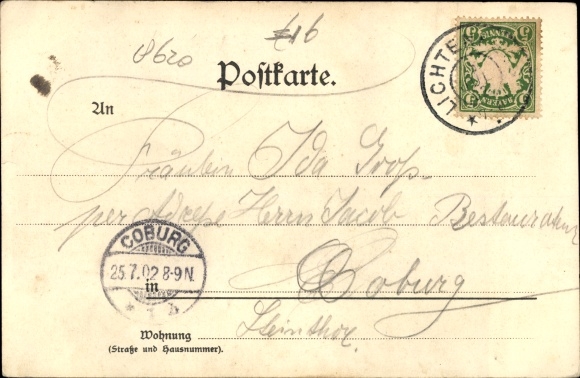 8620
16
Postkarte.
LICHTE
5 5
BAYERN
An
Fräulein Ida Groß
per Adresse Herrn Jacob Restaurateur
COBURG
25.7.02 8-9N.
in Coburg
Steinthor.
Wohnung
(Straße und Hausnummer).